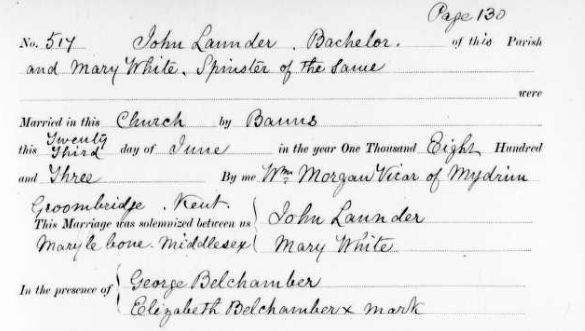 Page 130
No. 517 John Launder, Bachelor. of this Parish
and Mary White, Spinster of the Same
were
Married in this Church by Banns
this Twenty Third day of June in the year One Thousand Eight Hundred
and Three By me Wm. Morgan Vicar of Mydrim
Groombridge. Kent.
This Marriage was solemnized between us { John Launder
Maryle bone. Middlesex { Mary White
In the presence of { George Belchamber
Elizabeth Belchamber x mark